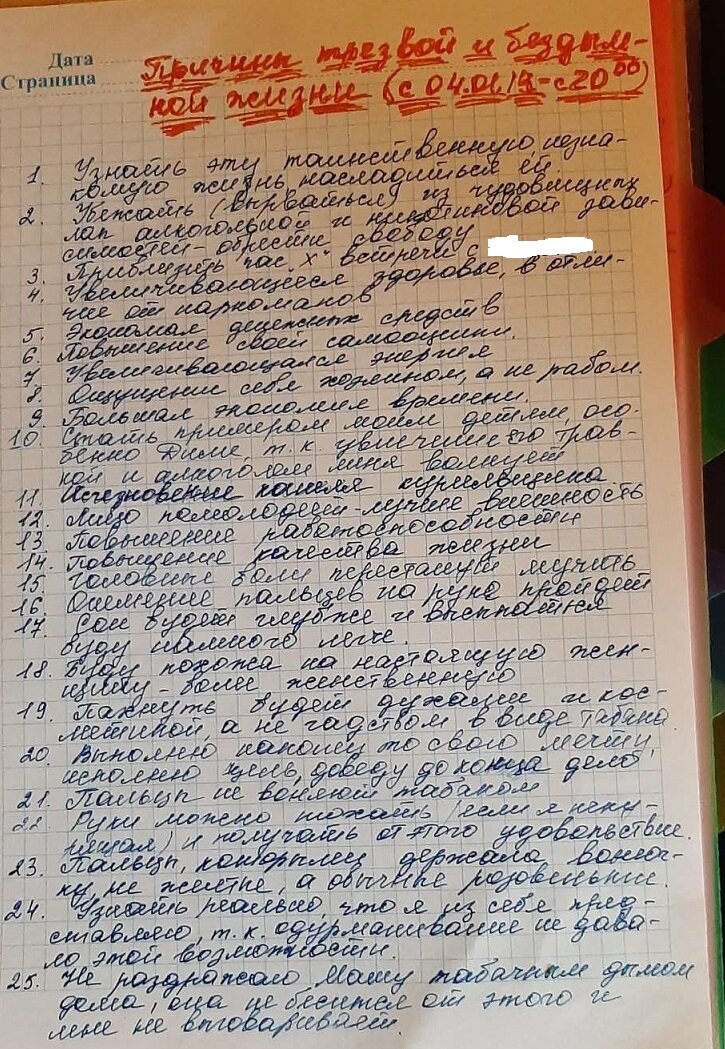 Дата
Страница
Причины трезвой и бездым-
ной жизни (с 04.01.19 - с 20 00)
1. Узнать эту таинственную незна-
комую жизнь, насладиться ей.
2. Убежать (вырваться) из чудовищных
лап алкогольной и никотиновой зави-
симостей - обрести свободу
3. Приблизить час "Х" встречи с
4. Увеличивающееся здоровье, в отли-
чие от наркоманов
5. Экономия денежных средств
6. Повышение своей самооценки.
7. Увеличивающаяся энергия
8. Ощущение себя хозяином, а не рабом.
9. Большая экономия времени.
10. Стать примером моим детям, осо-
бенно Диме, т.к. увлечение его трав-
кой и алкоголем меня волнует
11. Исчезновение кашля курильщика
12. Лицо помолодеет - лучше внешность
13. Повышение работоспособности
14. Повышение качества жизни
15. Головные боли перестанут мучить
16. Онемение пальцев на руке пройдет
17. Сон будет глубже и высыпаться
буду намного легче.
18. Буду похожа на настоящую жен-
щину - более женственную
19. Пахнуть будет духами и кос-
метикой, а не гадством в виде табака.
20. Выполню наконец то свою мечту,
исполню цель, доведу до конца дело
21. Пальцы не воняют табаком
22. Руки можно нюхать (если я
и получать от этого удовольствие.
23. Пальцы, которыми держала вонюч-
ку, не желтые, а обычные розовенькие.
24. Узнать реально, что я из себя пред-
ставляю, т.к. одурманивание не дава-
ло этой возможности.
25. Не раздражаю Машу табачным дымом
дома, она не бесится от этого и
мне не выговаривает.